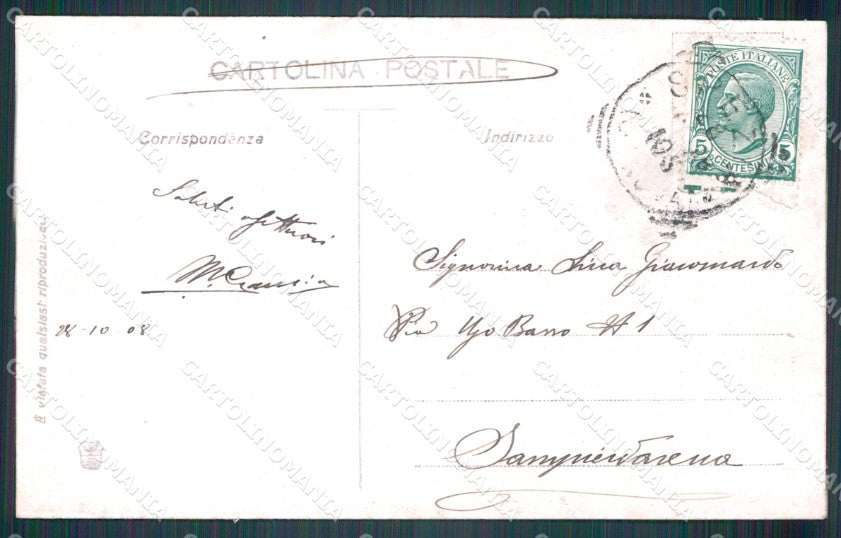 CARTOLINA POSTALE
Corrispondenza
Indirizzo
POSTE ITALIANE
5 CENTESIMI 5
Saluti affettuosi
M.
28-10-08
Signorina Lina Giacomardo
Via Ugo Bano N 1
Sampierdarena
È vietata qualsiasi riproduzione
CARTOLINOMANIA